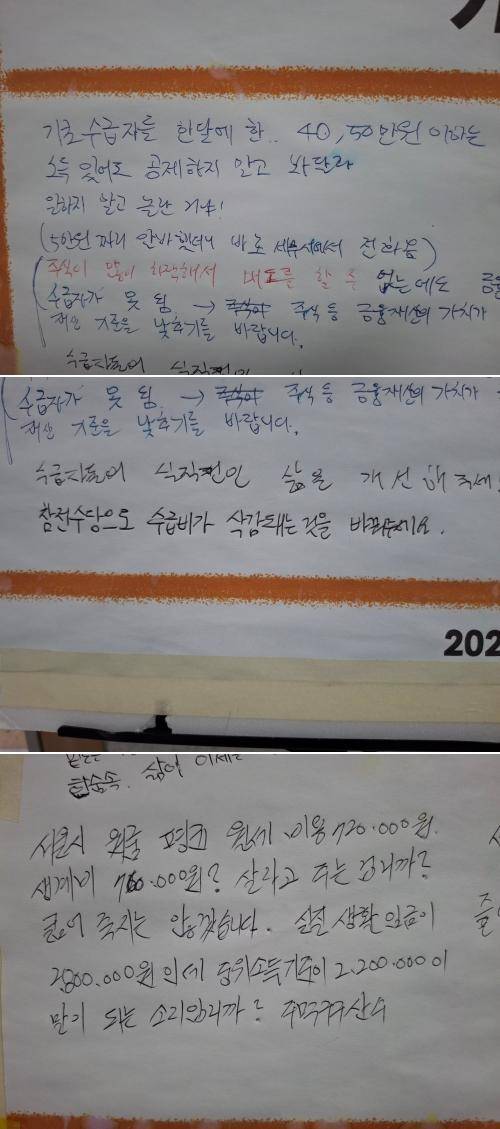 기초수급자를 한달에 한.. 40,50만원 이하는
소득 있어도 공제하지 말고 봐달라
일하지 말고 놀란 거냐!
(5만원짜리 알바했더니 바로 세무서에서 전화옴)
주식이 많이 하락해서 매도를 할 수 없는데도 금융
수급자가 못 됨 → 주식 등 금융재산의 가치가
재산 기준을 낮추기를 바랍니다.
수급자들의
수급자가 못 됨 → 주식 등 금융재산의 가치가
재산 기준을 낮추기를 바랍니다.
수급자들의 식적인 삶을 개선해주세
참전수당으로 수급비가 삭감돼는 것을 바꿔주세요.
202
한숨속. 삶이 이제는
서울시 원룸 평균 월세 비용 720.000원.
생계비 760.000원? 살라고 주는 겁니까?
굶어 죽지는 않겠습니다. 실질 생활 임금이
2800.000원 인데 중위소득기준이 2.200.000이
말이 되는 소리입니까? 주먹구구 산수